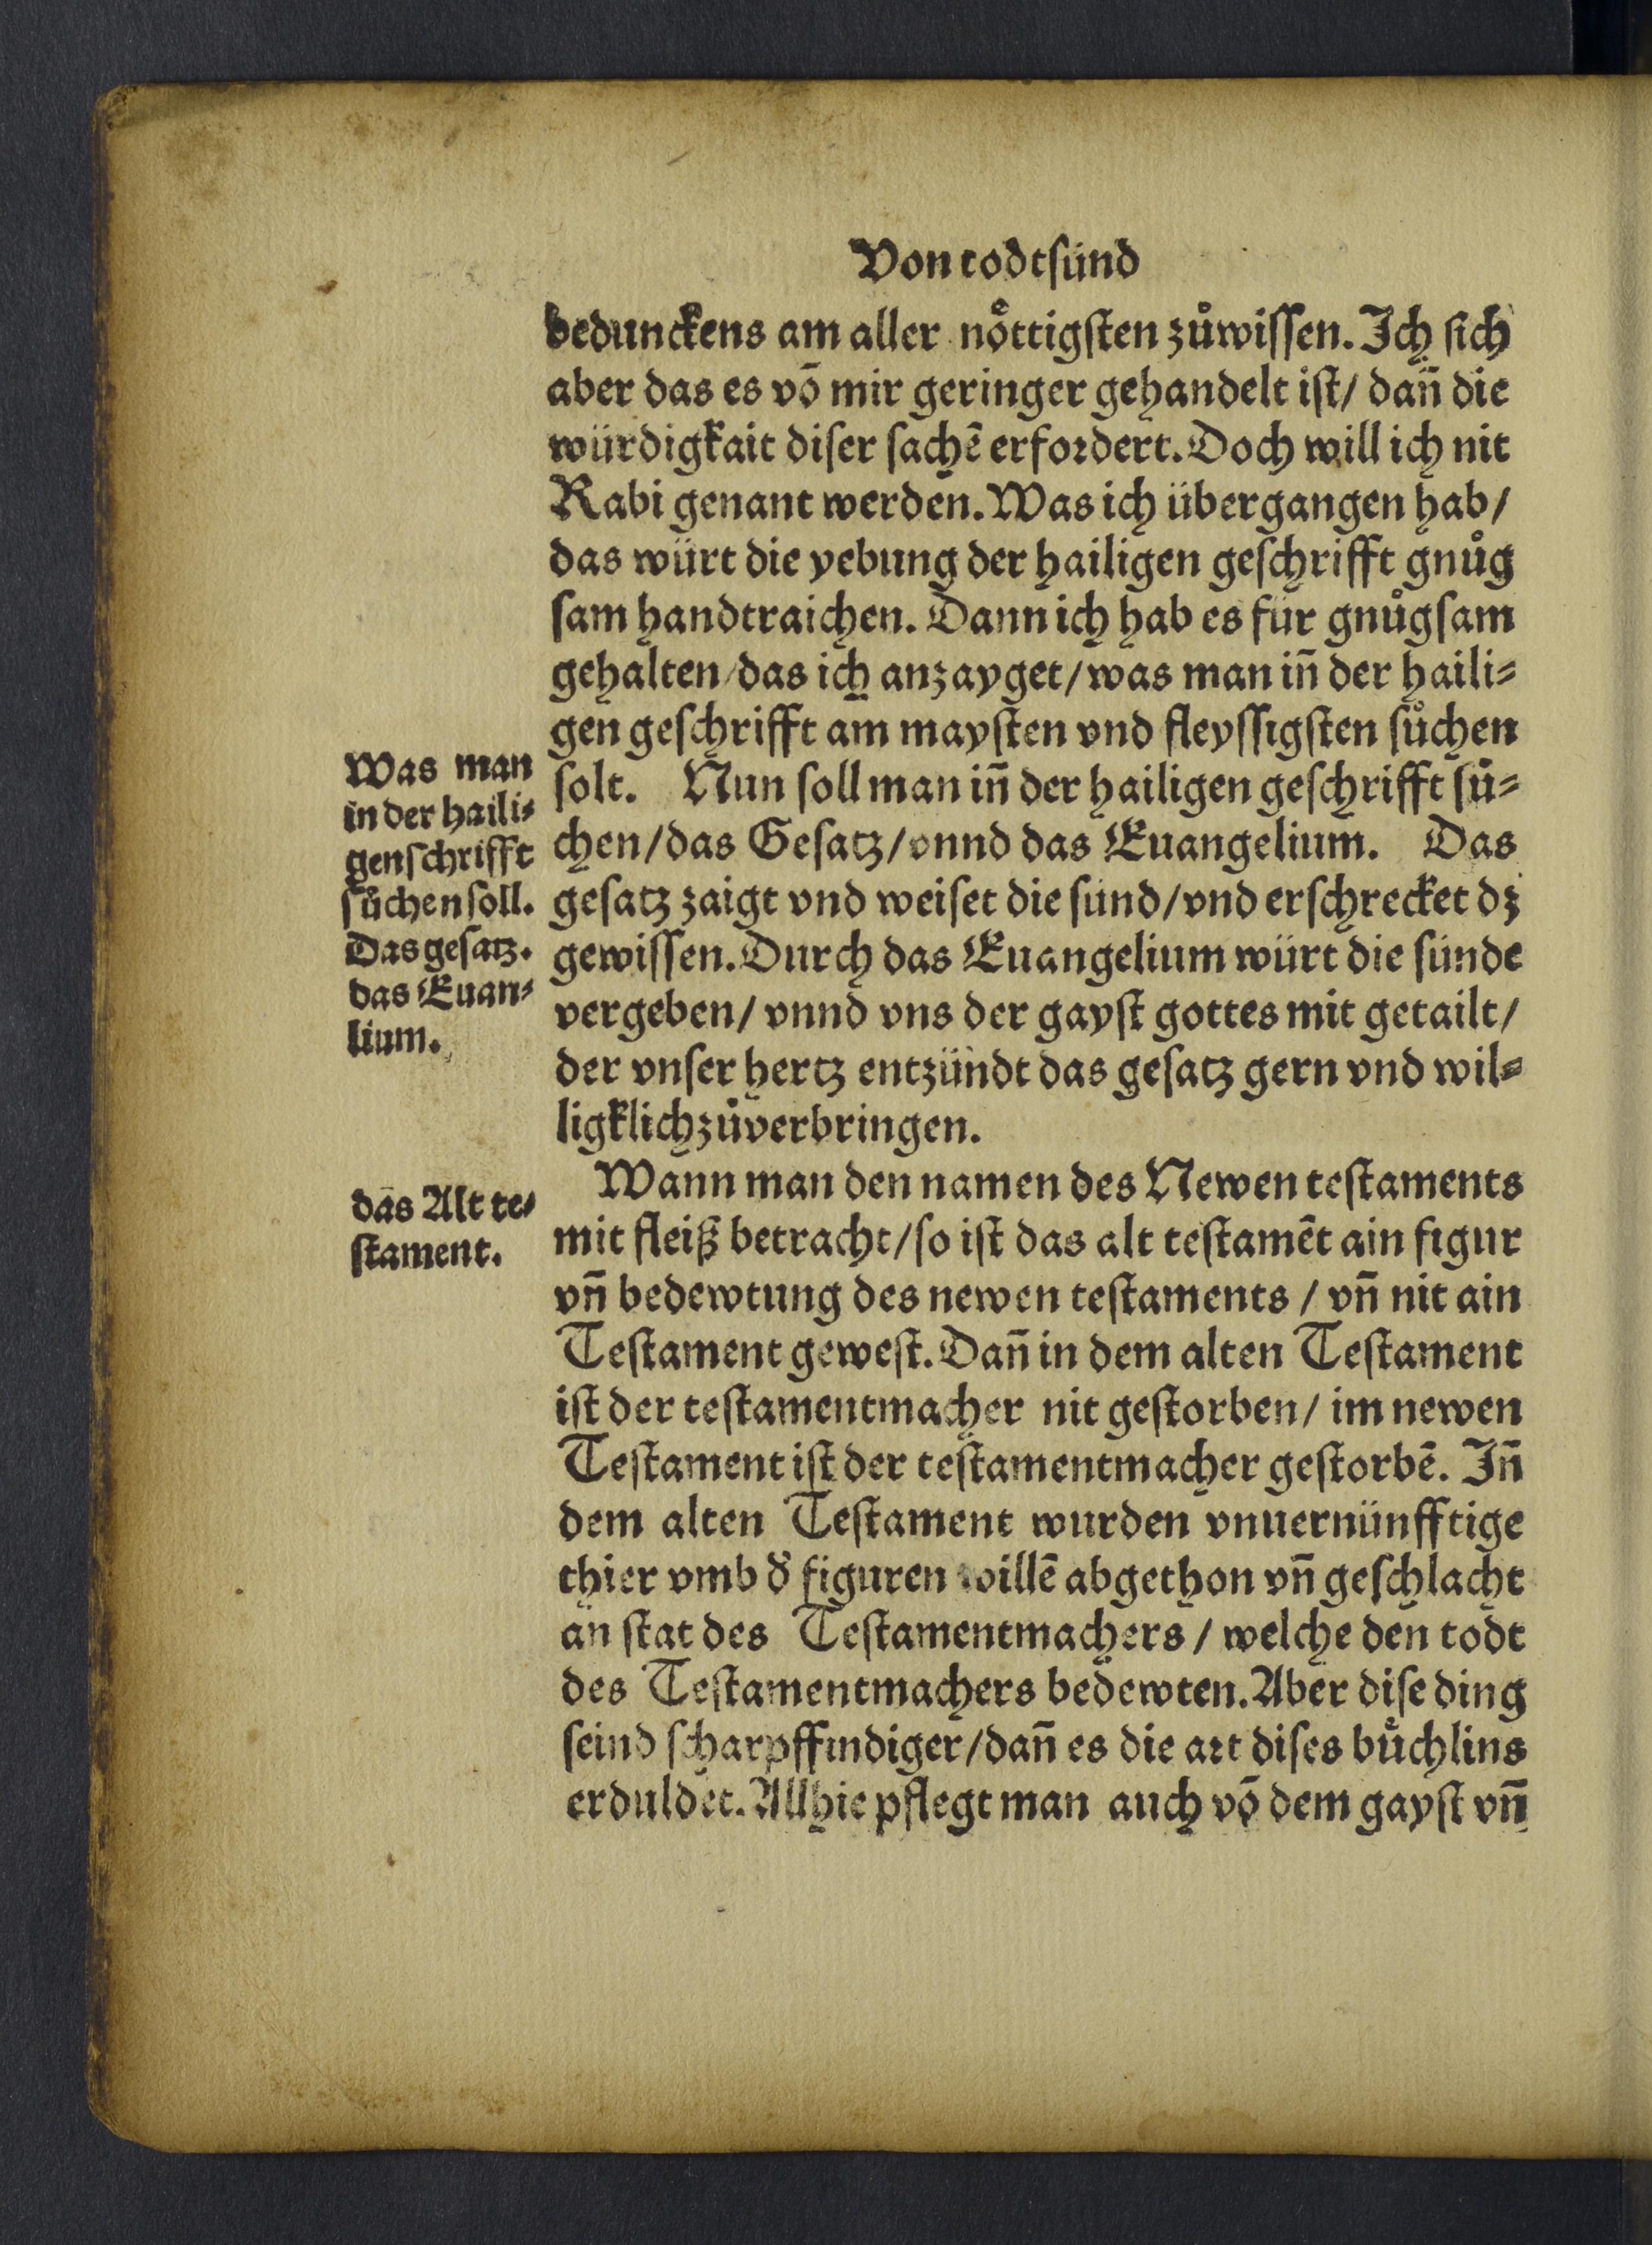 Von todtſünd
bedunckens am aller nöttigſten zůwiſſen. Ich ſich
aber das es vō mir geringer gehandelt iſt/ dañ die
würdigkait diſer ſachē erfordert. Doch will ich nit
Rabi genant werden. Was ich übergangen hab/
das würt die yebung der hailigen geſchrifft gnůg
ſam handtraichen. Dann ich hab es für gnůgſam
gehalten/das ich anzayget/was man iñ der haili⸗
gen geſchrifft am mayſten vnd fleyſſigſten ſůchen
ſolt. Nun ſoll man iñ der hailigen geſchrifft ſů⸗
chen/das Geſatz/vnnd das Euangelium. Das
geſatz zaigt vnd weiſet die ſünd/vnd erſchrecket dz
gewiſſen. Durch das Euangelium würt die ſünde
vergeben/ vnnd vns der gayſt gottes mit getailt/
der vnſer hertz entzündt das geſatz gern vnd wil⸗
ligklich zůverbringen.
Was man
in der haili⸗
genſchrifft
ſůchen ſoll.
Das geſatz.
das Euan⸗
lium.
Wann man den namen des Newen teſtaments
mit fleiß betracht/ſo iſt das alt teſtamēt ain figur
vñ bedewtung des newen teſtaments / vñ nit ain
Teſtament geweſt. Dañ in dem alten Teſtament
iſt der teſtamentmacher nit geſtorben/ im newen
Teſtament iſt der teſtamentmacher geſtorbē. Iñ
dem alten Teſtament wurden vnuernünfftige
thier vmb d̕ figuren willē abgethon vñ geſchlacht
an ſtat des Teſtamentmachers / welche den todt
des Teſtamentmachers bedewten. Aber diſe ding
ſeind ſcharpffindiger/dañ es die art diſes bůchlins
erduldet. Allhie pflegt man auch vō dem gayſt vñ
das Alt te⸗
ſtament.